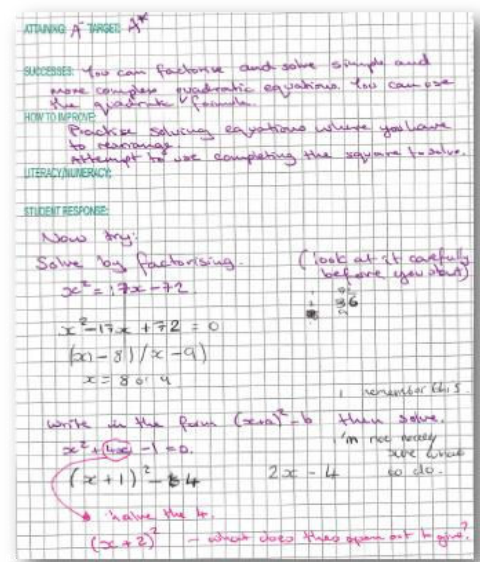 ATTAINING: A⁻ TARGET: A*
SUCCESSES: You can factorise and solve simple and
more complex quadratic equations. You can use
the quadratic formula.
HOW TO IMPROVE:
Practise solving equations where you have
to rearrange.
Attempt to use completing the square to solve.
LITERACY/NUMERACY:
STUDENT RESPONSE:
Now try:
Solve by factorising. (look at it carefully
before you start)
x² = 17x - 72
36
x² - 17x + 72 = 0
(x - 8)(x - 9)
x = 8 or 9
remember this
Write in the form (x+a)² - b then solve.
x² + 4x - 1 = 0.
i'm not really
sure what
to do.
(x + 1)² - 4 2x - 4
halve the 4.
(x + 2)² - what does this open out to give?